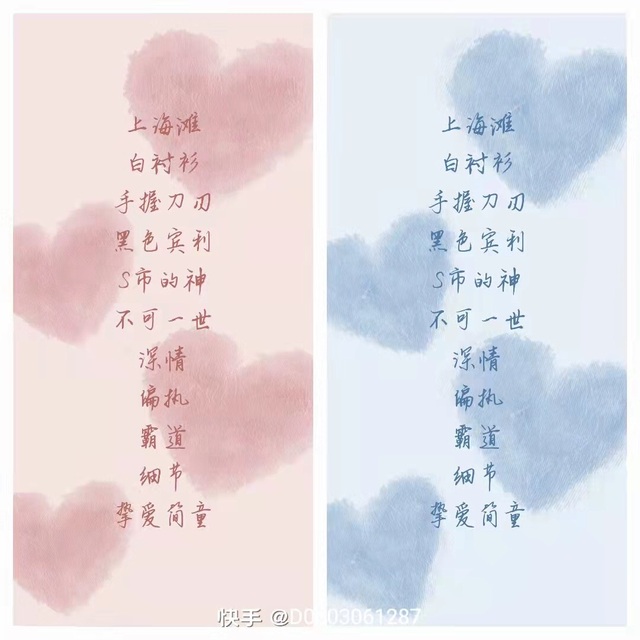 上海滩
白衬衫
手握刀刃
黑色宾利
S市的神
不可一世
深情
偏执
霸道
细节
挚爱简童
上海滩
白衬衫
手握刀刃
黑色宾利
S市的神
不可一世
深情
偏执
霸道
细节
挚爱简童
快手 @D0303061287